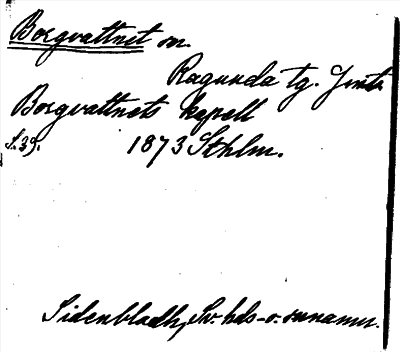 Borgvattnet sn.
Ragunda tg. Jmtl.
Borgvattnets kapell
s.39. 1873 Sthlm.
Sidenbladh, Sv. hds- o. sunamn.